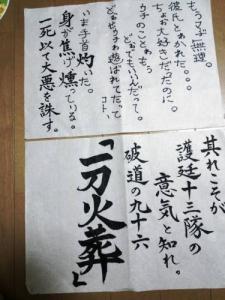 もうマヂ無理。
彼氏とわかれた。。。
ちょお大好きだったのに。
ゥチのことゎもぅ
どぉでもいぃんだって。
どぉせゥチゎ遊ばれてたって
コト、
いま手首灼いた。
身が焦げ燻っている。
一死以て大悪を誅す。
其れこそが
護廷十三隊の
意気と知れ。
破道の九十六
「一刀火葬」